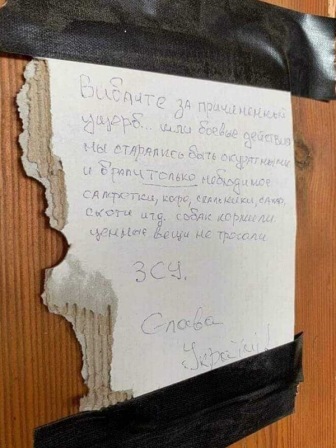 Вибачте за причиненный
ущерб... шли боевые действия
мы старались быть окуратными
и брали только необходимое
салфетки, коро, сало,
скотч итд. собак кормили
ценные вещи не трогали
ЗСУ.
Слава
Україні!